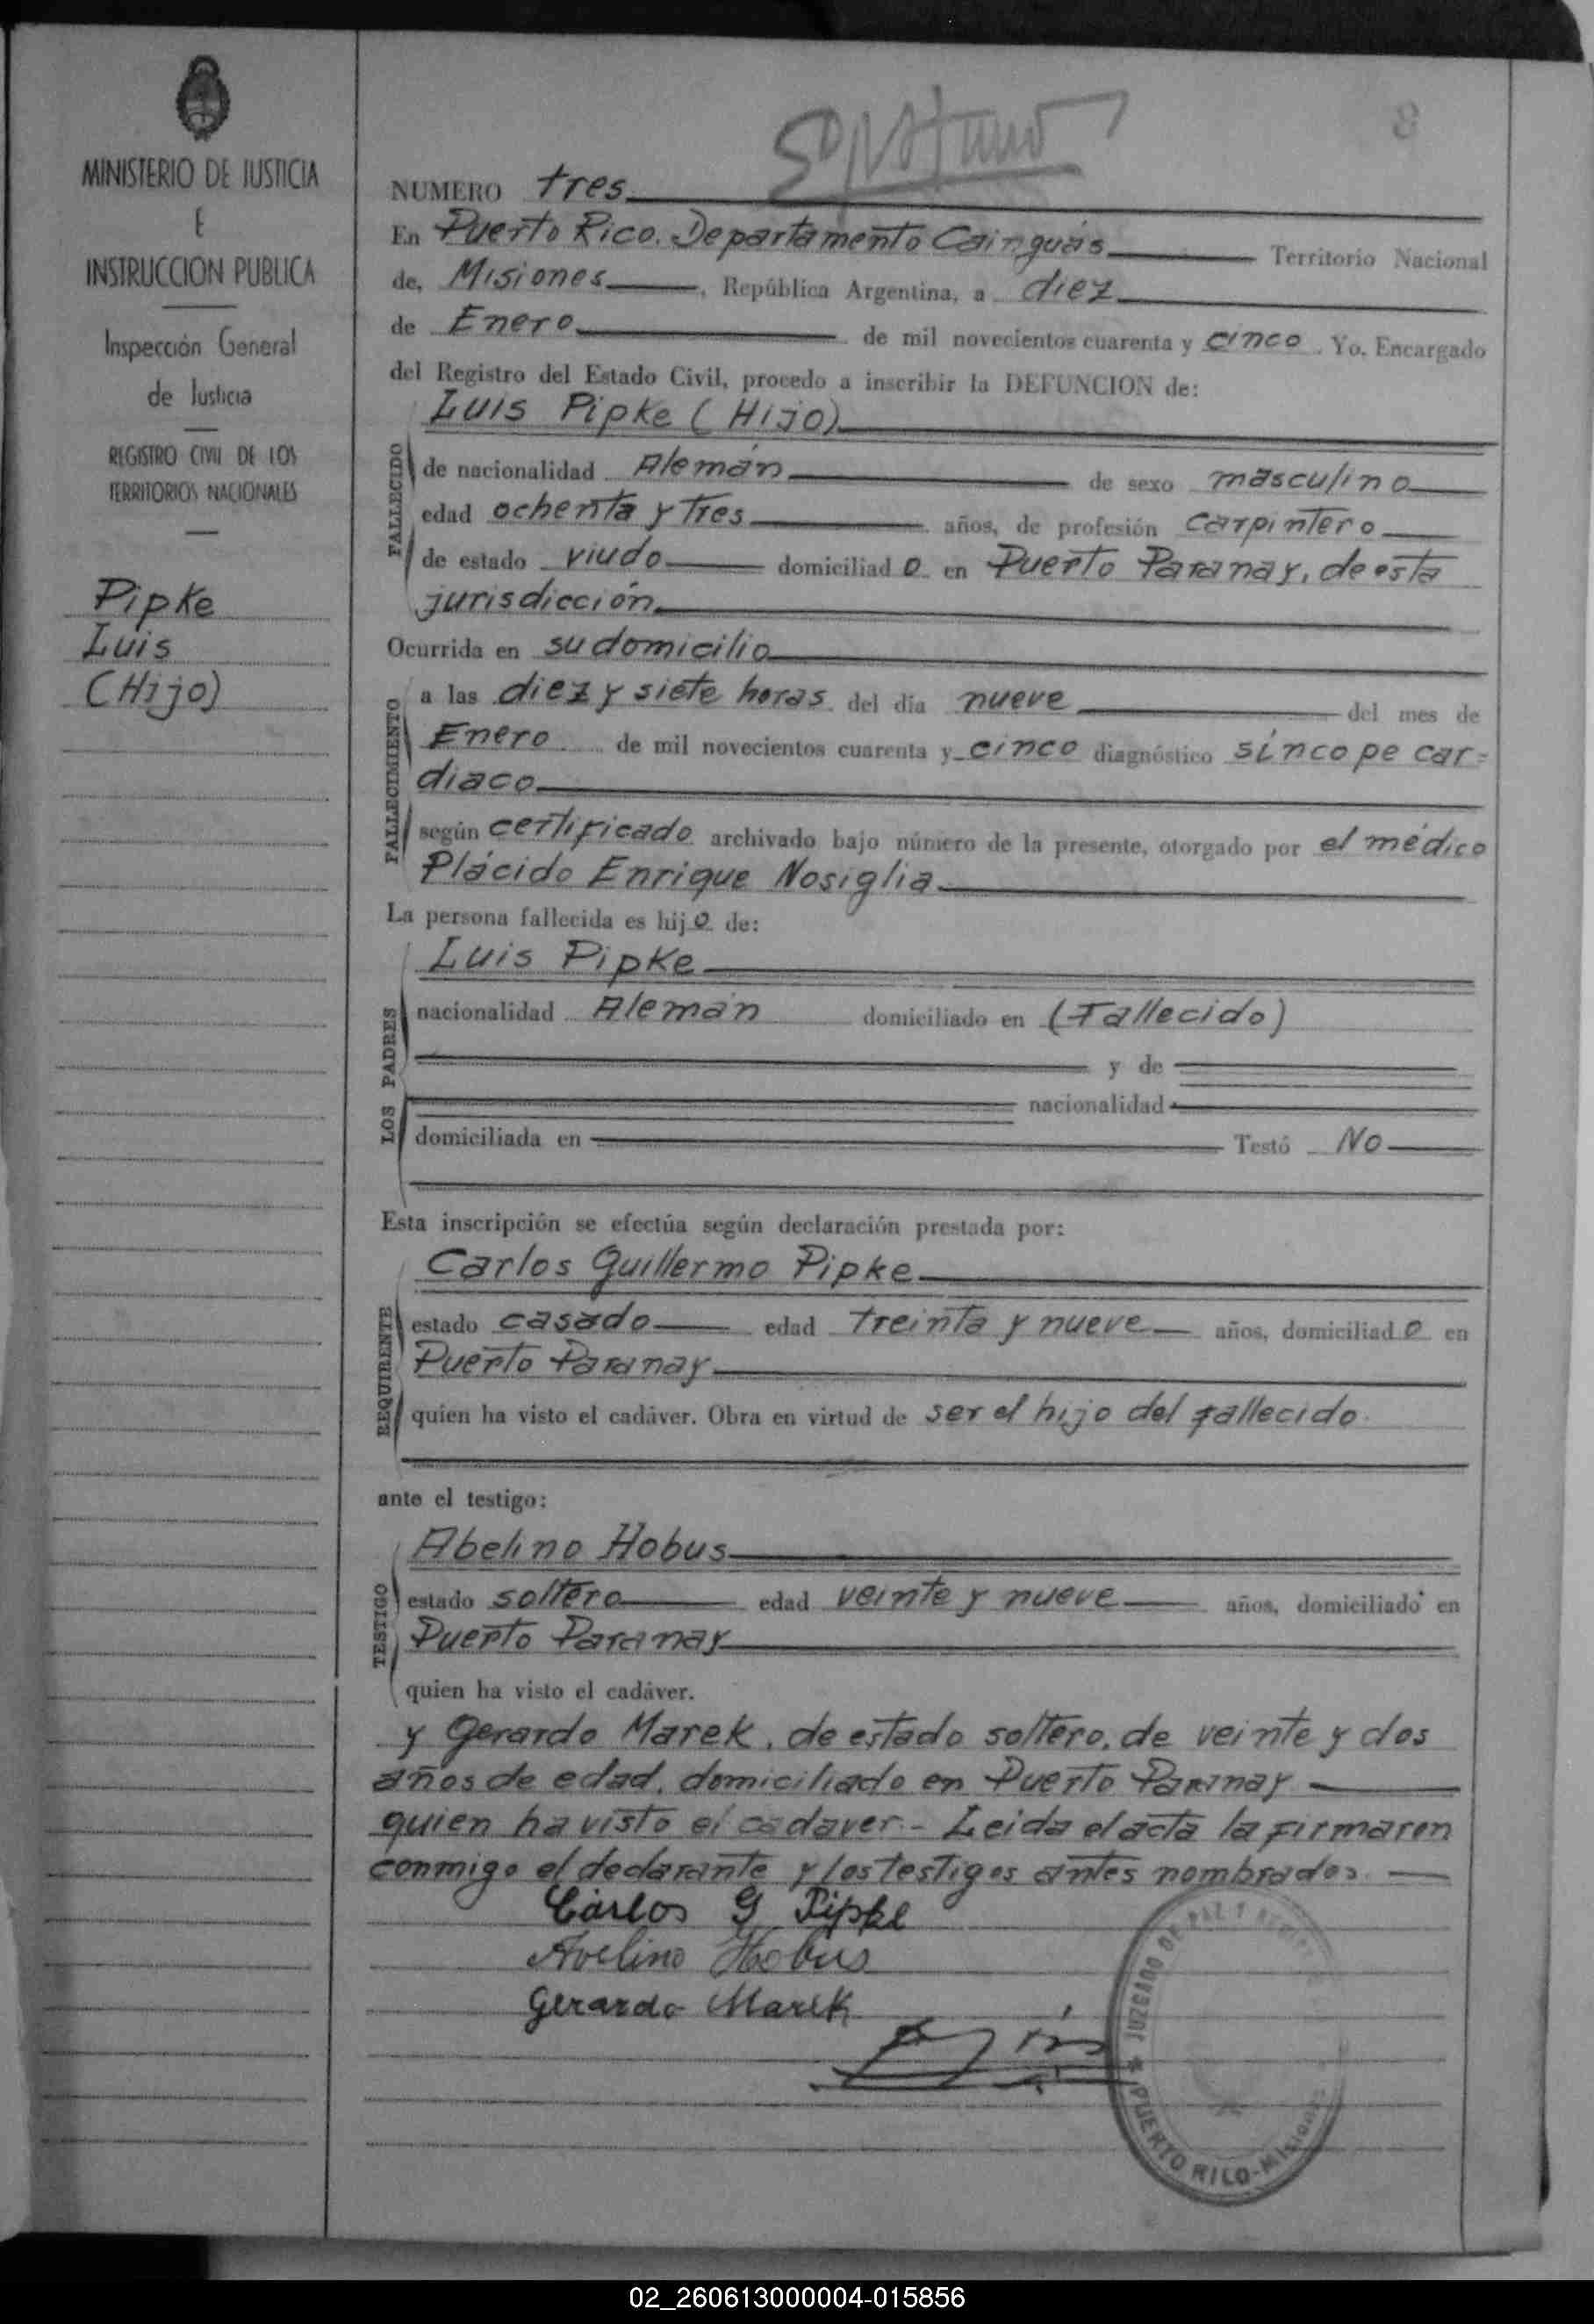 MINISTERIO DE JUSTICIA
E
INSTRUCCION PUBLICA
Inspección General
de Justicia
REGISTRO CIVIL DE LOS
TERRITORIOS NACIONALES
Pipke
Luis
(Hijo)
8
NUMERO tres
En Puerto Rico. Departamento Cainguás Territorio Nacional
de, Misiones, República Argentina, a diez
de Enero de mil novecientos cuarenta y cinco. Yo, Encargado
del Registro del Estado Civil, procedo a inscribir la DEFUNCION de:
Luis Pipke (Hijo)
FALLECIDO
de nacionalidad Alemán de sexo masculino
edad ochenta y tres años, de profesión carpintero
de estado viudo domiciliado en Puerto Paranay, de esta
jurisdicción
Ocurrida en su domicilio
FALLECIMIENTO
a las diez y siete horas del día nueve del mes de
Enero de mil novecientos cuarenta y cinco diagnóstico síncope car=
diaco
según certificado archivado bajo número de la presente, otorgado por el médico
Plácido Enrique Nosiglia
La persona fallecida es hijo de:
LOS PADRES
Luis Pipke
nacionalidad Alemán domiciliado en (Fallecido)
y de
nacionalidad
domiciliada en Testó No
Esta inscripción se efectúa según declaración prestada por:
REQUIRENTE
Carlos Guillermo Pipke
estado casado edad treinta y nueve años, domiciliado en
Puerto Paranay
quien ha visto el cadáver. Obra en virtud de ser el hijo del fallecido.
ante el testigo:
TESTIGO
Abelino Hobus
estado soltero edad veinte y nueve años, domiciliado en
Puerto Paranay
quien ha visto el cadáver.
y Gerardo Marek, de estado soltero, de veinte y dos
años de edad, domiciliado en Puerto Paranay
quien ha visto el cadaver.- Leida el acta la firmaron
conmigo el declarante y los testigos antes nombrados.
Carlos G Pipke
Avelino Hobus
Gerardo Marek
JUZGADO DE PAZ Y
PUERTO RICO-Misiones
02_260613000004-015856